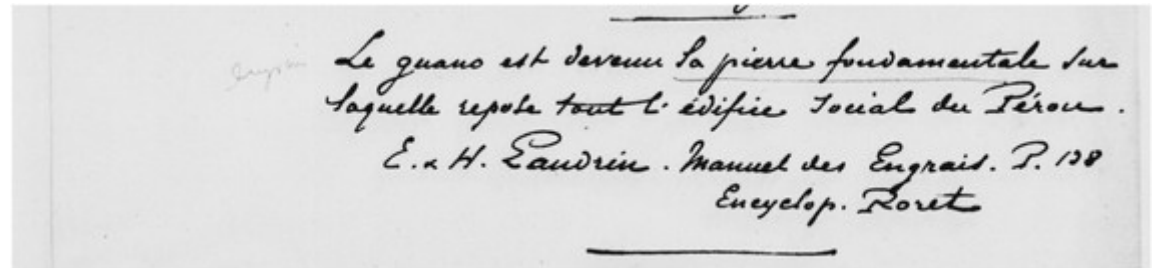 Le guano est devenu la pierre fondamentale sur
laquelle repose tout l'édifice social du Pérou.
E. & H. Landrin. Manuel des Engrais. P. 138
Encyclop. Roret